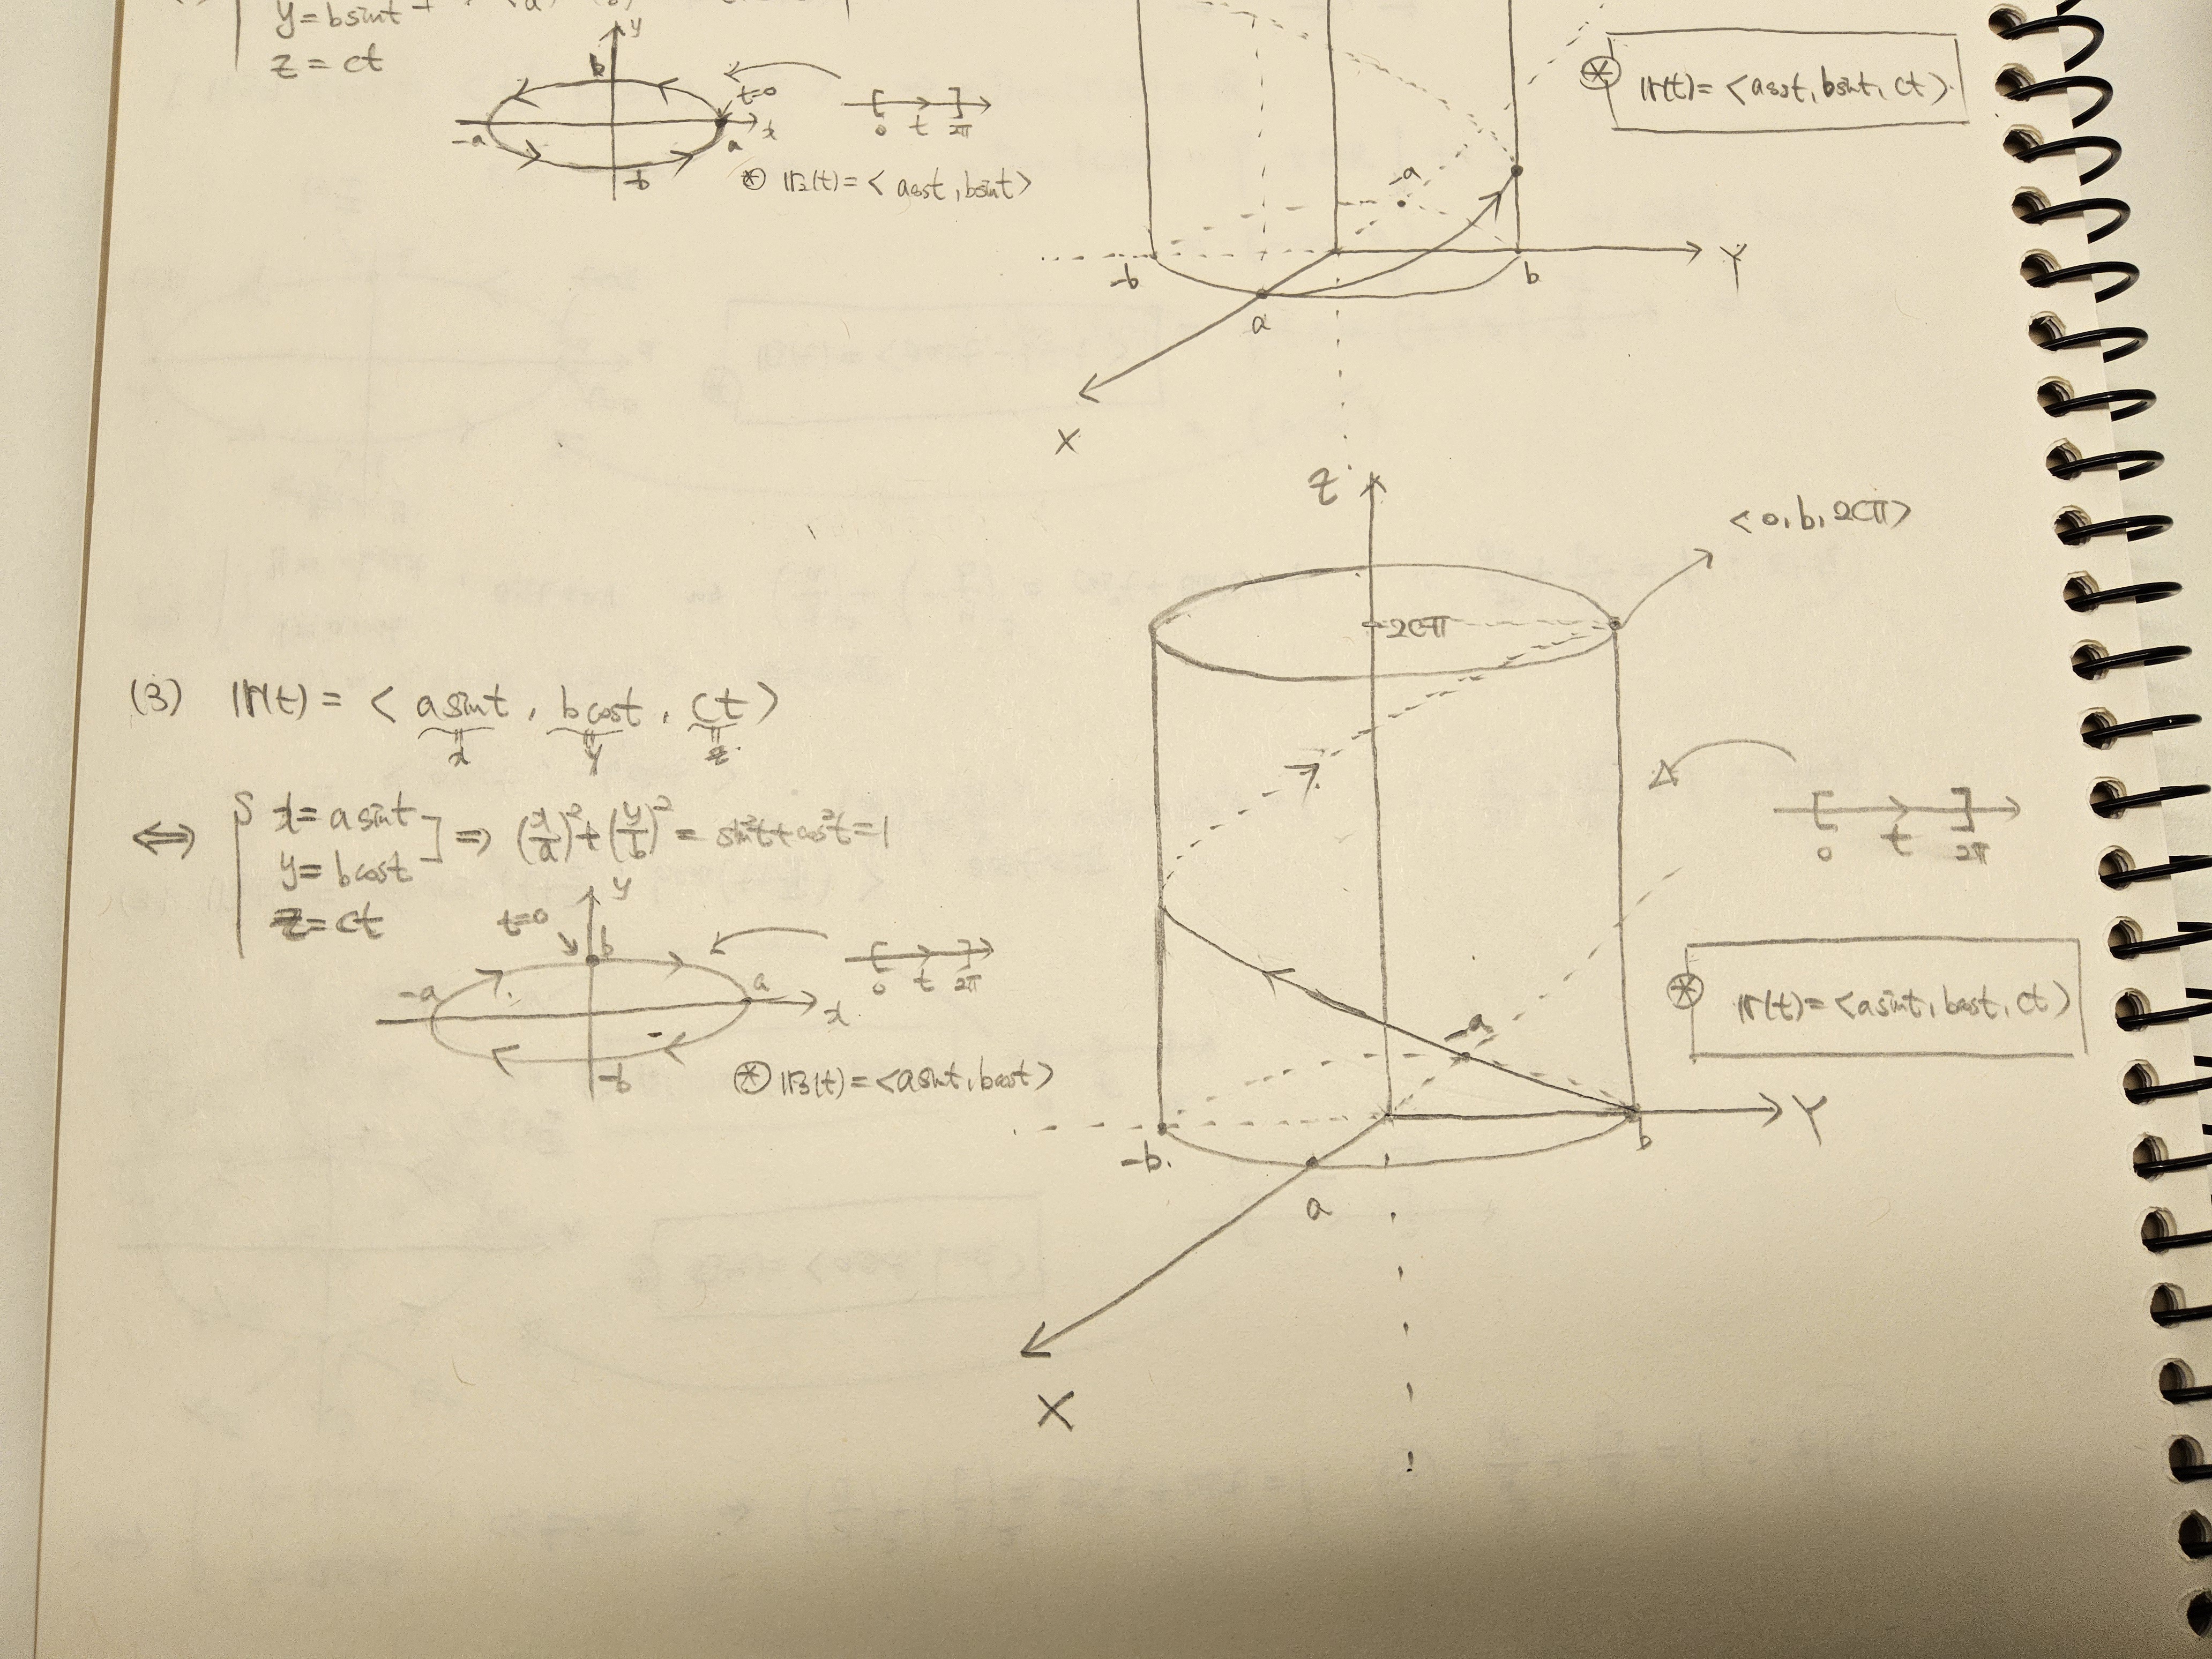 y = b sin t
z = ct
y
b
t=0
-a
a
x
-b
[ 0 t 2π ]
⊛ r₂(t) = < a cos t, b sin t >
⊛ r(t) = < a cos t, b sin t, ct >
-a
-b
b
Y
a
X
Z
<0, b, 2cπ>
2cπ
(3) r(t) = < a sin t, b cos t, ct >
x
y
z
⇔ { x = a sin t
y = b cos t ] ⇒ (x/a)² + (y/b)² = sin²t + cos²t = 1
z = ct
y
t=0
b
-a
a
x
-b
[ 0 t 2π ]
⊛ r₃(t) = < a sin t, b cos t >
[ 0 t 2π ]
⊛ r(t) = < a sin t, b cos t, ct >
-a
-b
b
Y
a
X